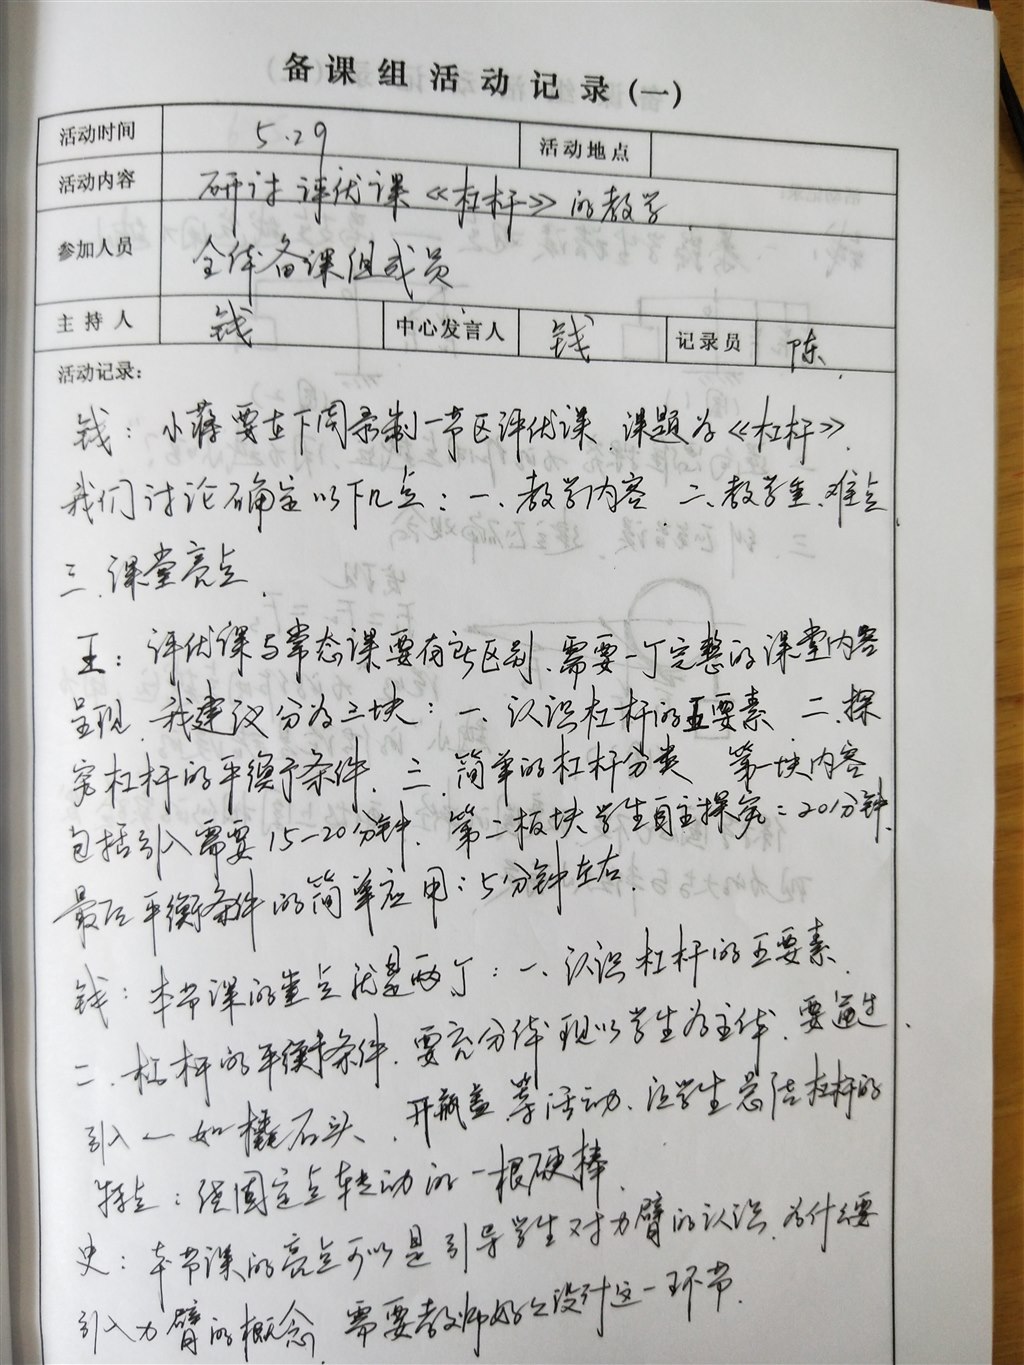 备课组活动记录(一)
活动时间 5.29 活动地点
活动内容 研讨评优课《杠杆》的教学
参加人员 全体备课组成员
主持人 钱 中心发言人 钱 记录员 陈
活动记录:
钱：小蒋要在下周录制一节区评优课，课题为《杠杆》.
我们讨论确定以下几点：一、教学内容 二、教学重、难点
三、课堂亮点.
王：评优课与常态课要有所区别，需要一个完整的课堂内容
呈现，我建议分为三块：一、认识杠杆的五要素 二、探
究杠杆的平衡条件、三、简单的杠杆分类 第一块内容
包括引入需要15-20分钟，第二板块学生自主探究：20分钟.
最后平衡条件的简单应用：5分钟左右.
钱：本节课的重点就是两个：一、认识杠杆的五要素、
二、杠杆的平衡条件，要充分体现以学生为主体，要通过
引入一如橇石头、开瓶盖等活动，让学生总结杠杆的
特点：绕固定点转动的一根硬棒.
史：本节课的亮点可以是引导学生对力臂的认识，为什么要
引入力臂的概念，需要教师好好设计这一环节.